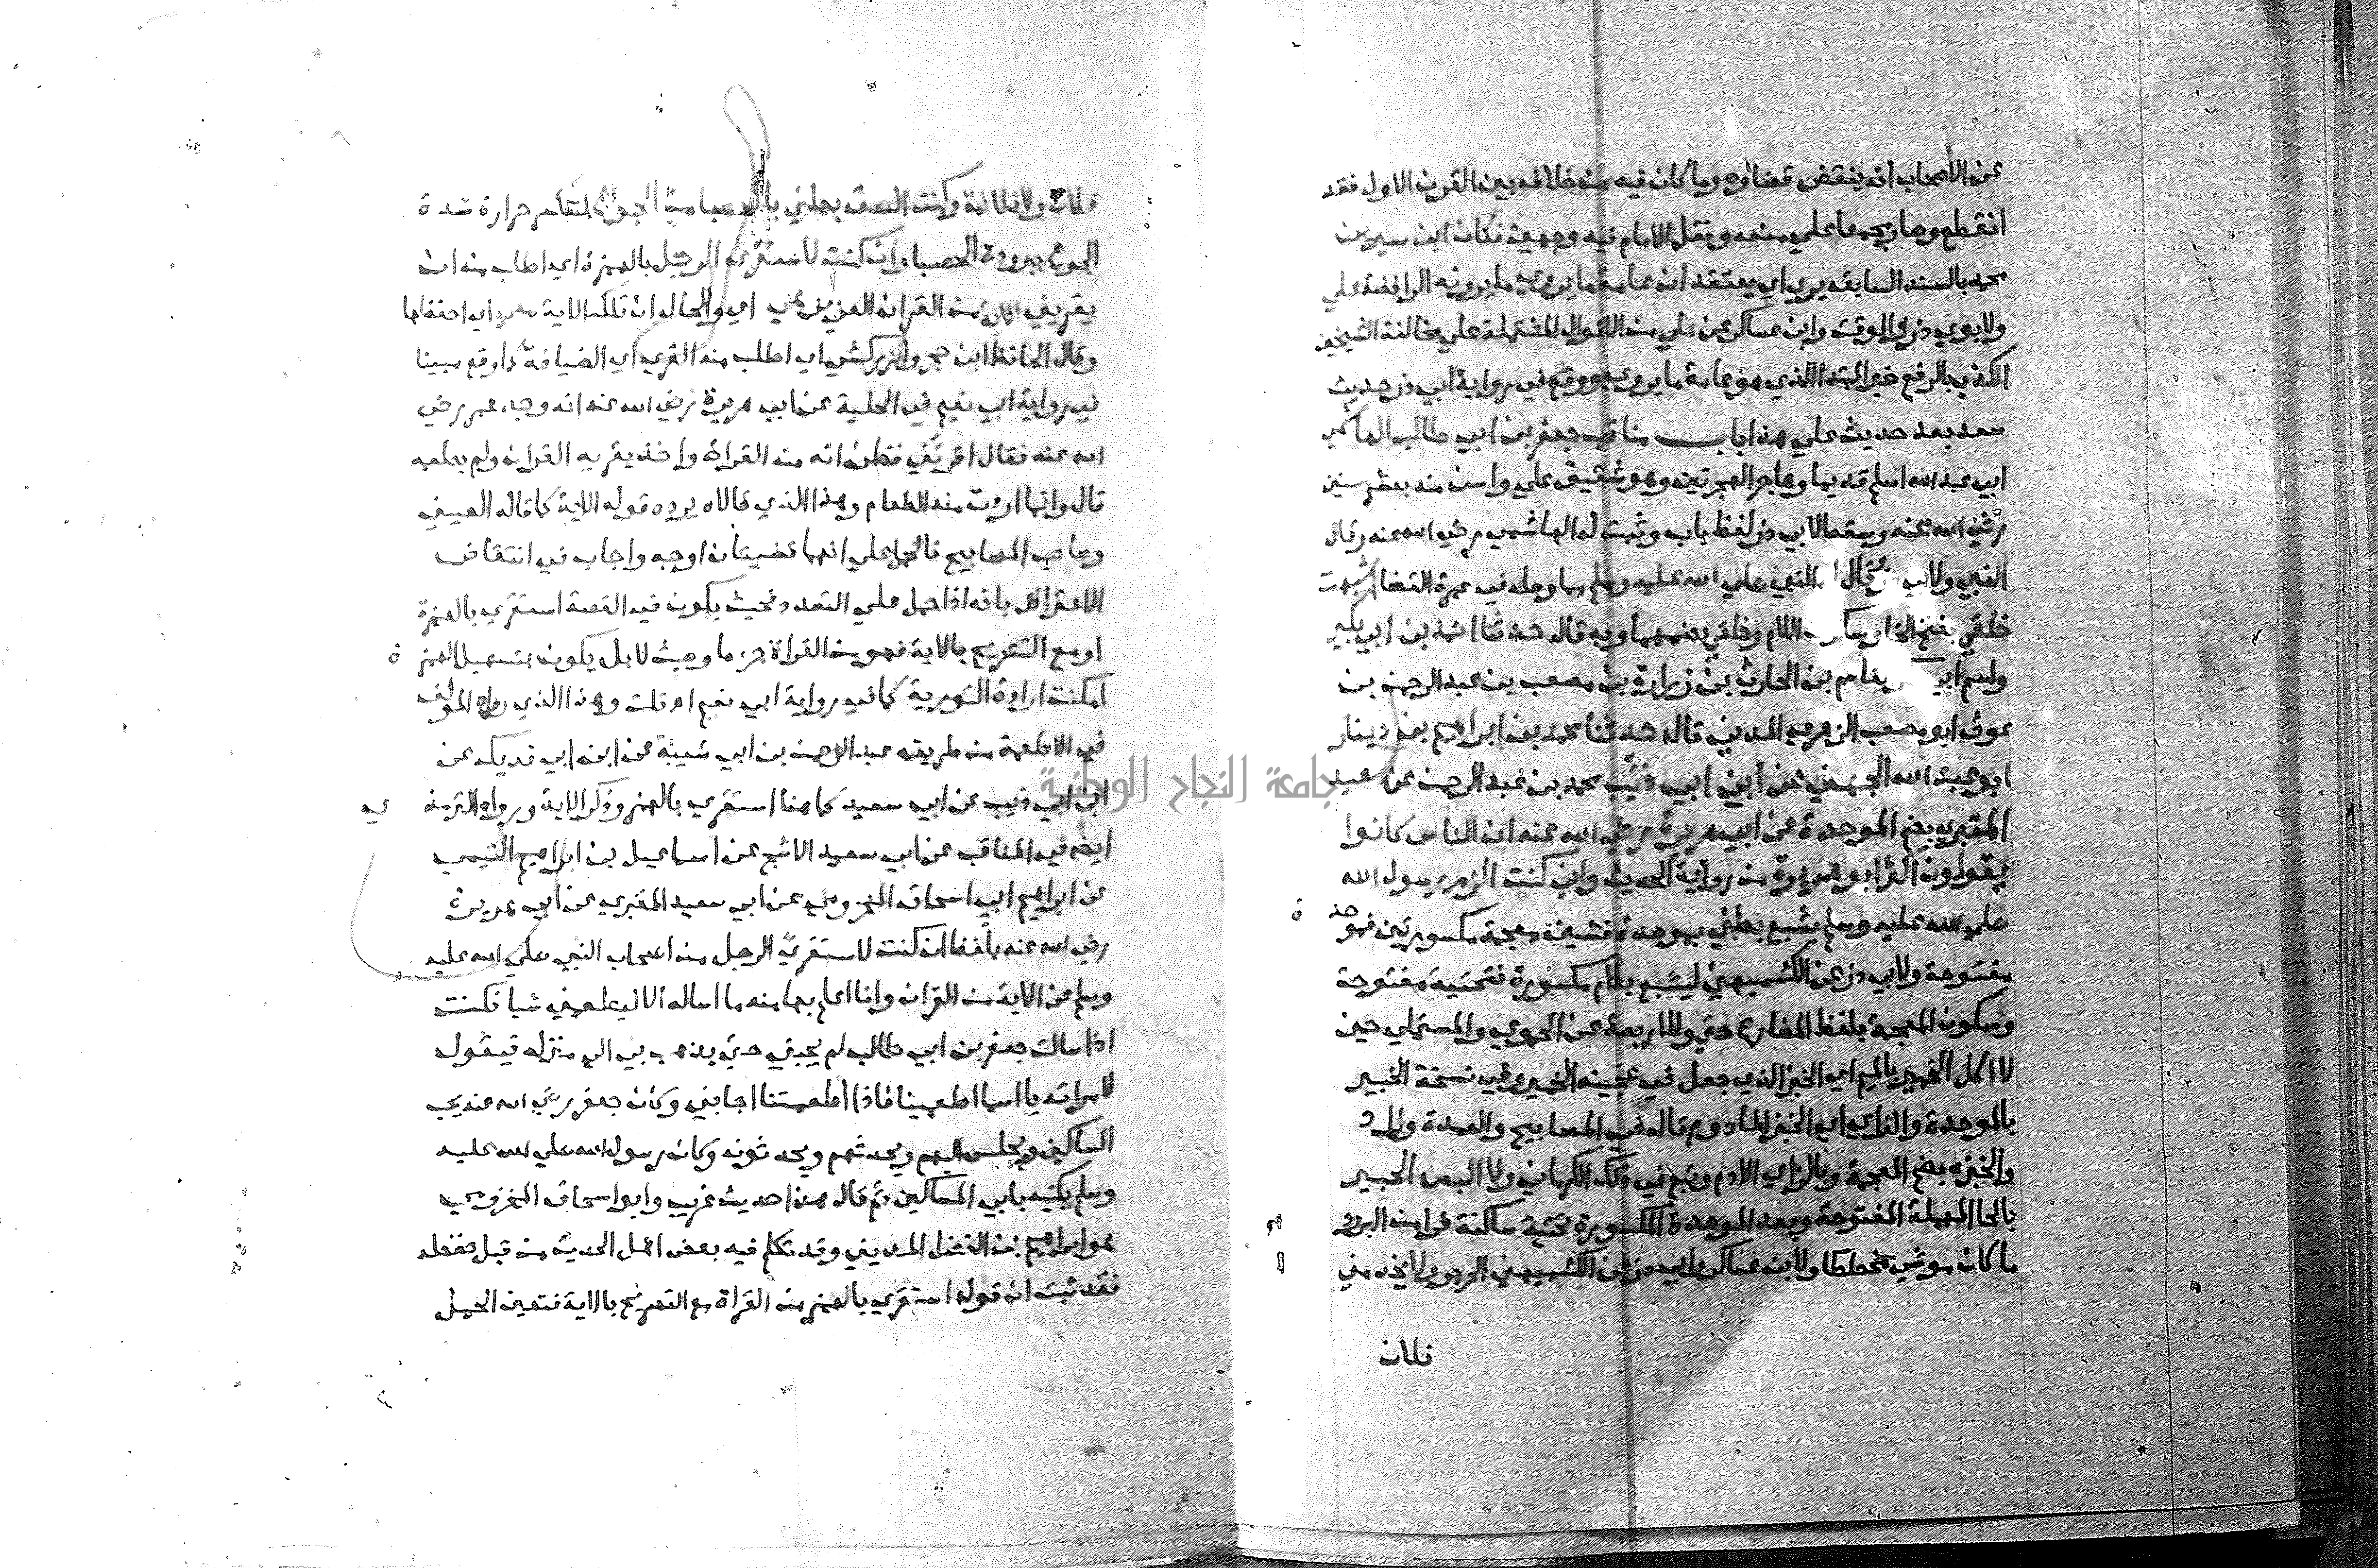 عن الأصحاب انه ينقض قضاؤه وما كان فيه من خلاف بين القرن الاول فقد
انقطع وصار مجمعا علي منعه ونقل الامام فيه وجهين فكان ابن سيرين
محمد بالسند السابق يري اي يعتقد ان عامة ما يروي ما يرويه الرافضة علي
ولابوي ذر والوقت وابن عساكر عن علي من الاقوال المشتملة علي مخالفة الشيخين
الكذب بالرفع خبر المبتدا الذي هو عامة ما يروي ووقع في رواية ابي ذر حديث
سعد بعد حديث علي هذا باب مناقب جعفر بن ابي طالب الهاشمي
ابي عبد الله اسلم قديما وهاجر الهجرتين وهو شقيق علي واسن منه بعشر سنين
رضي الله عنه وسقط لابي ذر لفظ باب وثبت له الهاشمي رضي الله عنه وقال
النبي ولابي ذر قال النبي صلي الله عليه وسلم مما وصله في عمرة القضا اشبهت
خلقي بفتح الخا وسكون اللام وخلقي بضمهما وبه قال حدثنا احمد بن ابي بكير
واسم ابي القاسم بن الحارث بن زرارة بن مصعب بن عبد الرحمن بن
عوف ابو مصعب الزهري المديني قال حدثنا محمد بن ابراهيم بن دينار
ابو عبد الله الجهني عن ابن ابي ذئب محمد بن عبد الرحمن عن سعيد
المقبري بضم الموحدة عن ابي هريرة رضي الله عنه ان الناس كانوا
يقولون اكثر ابو هريرة من رواية الحديث واني كنت الزم رسول الله
صلي الله عليه وسلم بشبع بطني بموحدة فشين معجمة مكسورتين فموحدة
مفتوحة ولابي ذر عن الكشميهني ليشبع بلام مكسورة فتحتية مفتوحة
وسكون المعجمة بلفظ المضارع حتي وللاربعة عن الحموي والمستملي حين
لا اكل الخمير بالميم اي الخبز الذي جعل في عجينه الخمير وفي نسخة الخبيز
بالموحدة والزاي اي الخبز المادوم قاله في المصابيح والعمدة وزاد
والخبزه بضم المعجمة وبالزاي الادم وتبع في ذلك الكرماني ولا البس الحبير
بالحا المهملة المفتوحة وبعد الموحدة المكسورة تحتية ساكنة فرا من البرود
ما كان موشي مخططا ولابن عساكر وابي ذر عن الكشميهني الحرير ولا يخدمني
فلان
فلان ولا فلانة وكنت الصق بطني بالحصبا من الجوع لتكسر حرارة شدة
الجوع ببرودة الحصبا وان كنت لاستقرئ الرجل بالهمزة اي اطلب منه ان
يقريني الاية من القران العزيز هي اي والحال ان تلك الاية معي اي احفظها
وقال الحافظ ابن حجر والزركشي اي اطلب منه القري اي الضيافة كما وقع مبينا
في رواية ابي نعيم في الحلية عن ابي هريرة رضي الله عنه انه وجد عمر رضي
الله عنه فقال اقرئني فظن انه من القراة واخذ يقريه القران ولم يطعمه
قال وانما اردت منه الطعام وهذا الذي قالاه يرده قوله الاية كما قاله العيني
وصاحب المصابيح فالحمل علي انهما قضيتان اوجه واجاب في انتقاض
الاعتراض بانه اذا حمل علي التعدد فحيث يكون في القصة استقري بالهمزة
او مع التصريح بالاية فهو من القراة جزما وحيث لا بل يكون بتسهيل الهمزة
امكنت ارادة التورية كما في رواية ابي نعيم اه قلت وهذا الذي رواه المولف
في الاطعمة من طريق عبد الرحمن بن ابي شيبة عن ابن ابي فديك عن
ابن ابي ذيب عن ابي سعيد كما هنا استقري بالهمز وذكر الاية ورواه الترمذي
ايضا في المناقب عن ابي سعيد الاشج عن اسماعيل بن ابراهيم التيمي
عن ابراهيم ابي اسحاق المخزومي عن ابي سعيد المقبري عن ابي هريرة
رضي الله عنه بلفظ ان كنت لاستقرئ الرجل من اصحاب النبي صلي الله عليه
وسلم عن الاية من القران وانا اعلم بها منه ما اساله الا ليطعمني شيا فكنت
اذا سالت جعفر بن ابي طالب لم يجبني حتي يذهب بي الي منزله فيقول
لامراته يا اسما اطعمينا فاذا اطعمتنا اجابني وكان جعفر رضي الله عنه يحب
المساكين ويجلس اليهم ويحدثهم ويحدثونه وكان رسول الله صلي الله عليه
وسلم يكنيه بابي المساكين ثم قال هذا حديث غريب وابو اسحاق المخزومي
هو ابراهيم بن الفضل المديني وقد تكلم فيه بعض اهل الحديث من قبل حفظه
فقد ثبت ان قوله استقري بالهمز من القراة مع التصريح بالاية فتعين الحمل
جامعة النجاح الوطنية